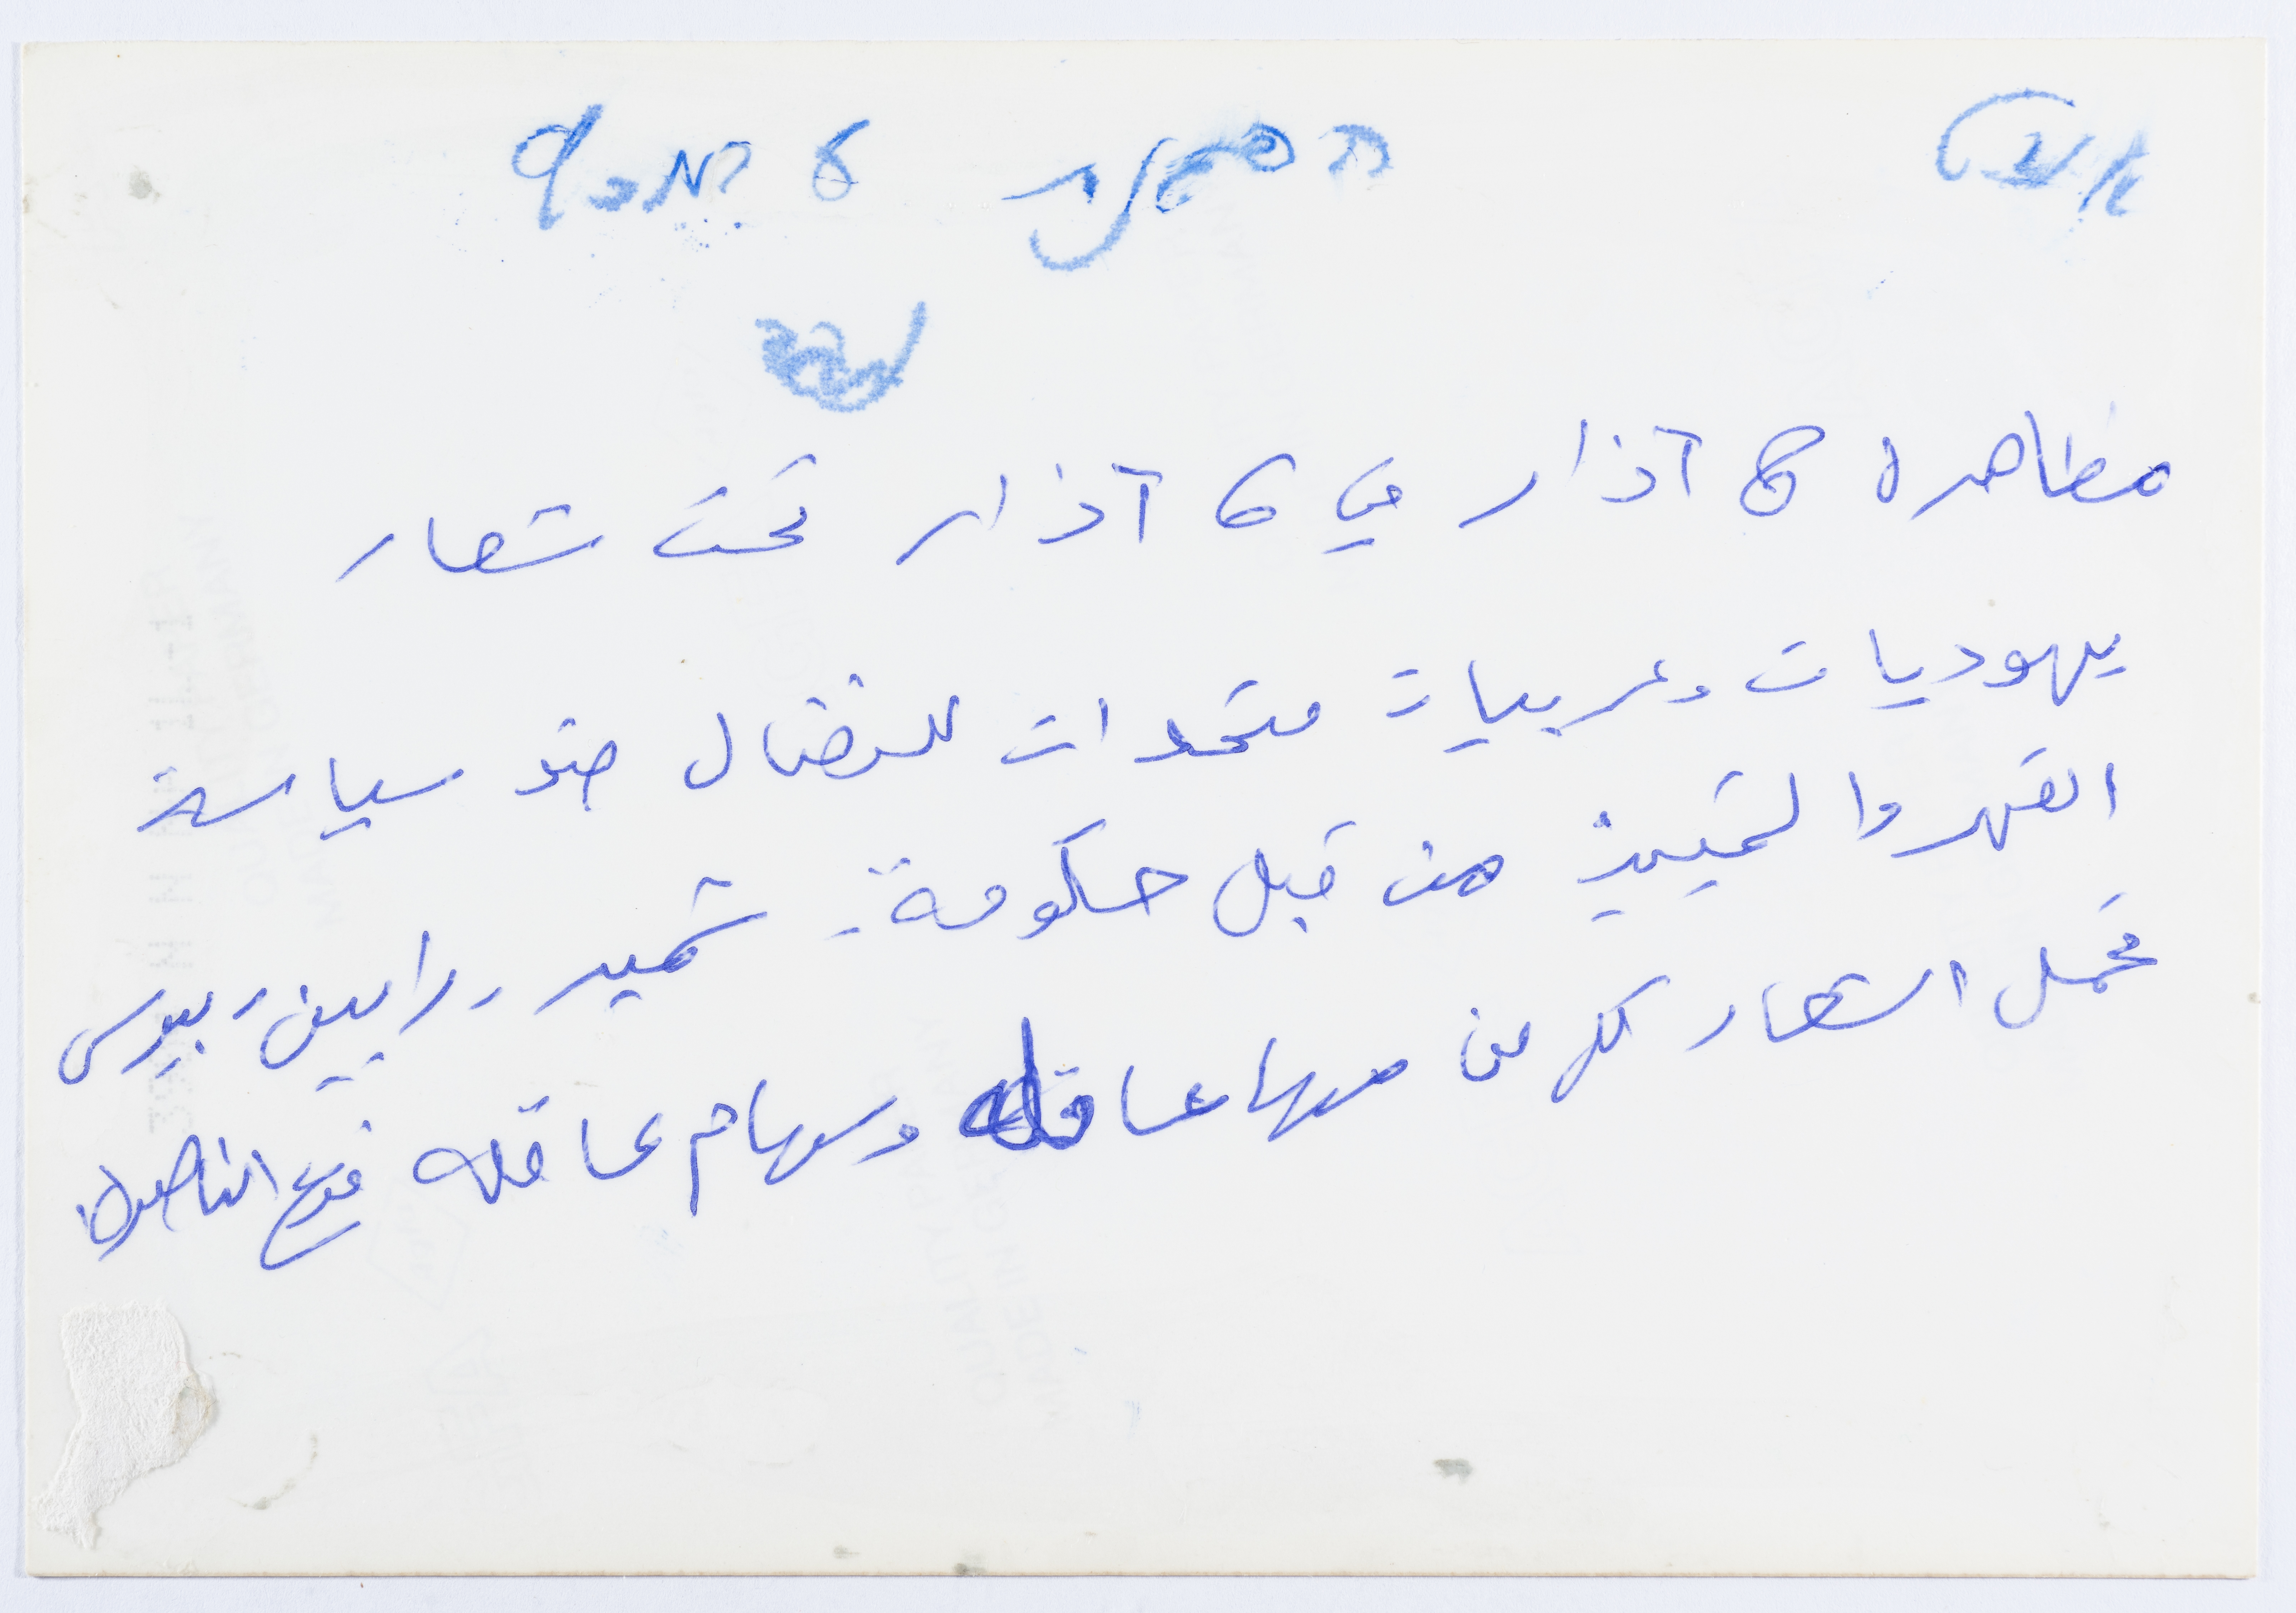 נשים הפגנת 8 במרץ
مظاهرة 8 آذار في 6 آذار تحت شعار
يهوديات وعربيات متحدات للنضال ضد سياسة
القهر والتمييز من قبل حكومة شمير - رابين - بيرس
تحمل الشعار كل من مها عاقله وسهام عاقله فرع الناصرة